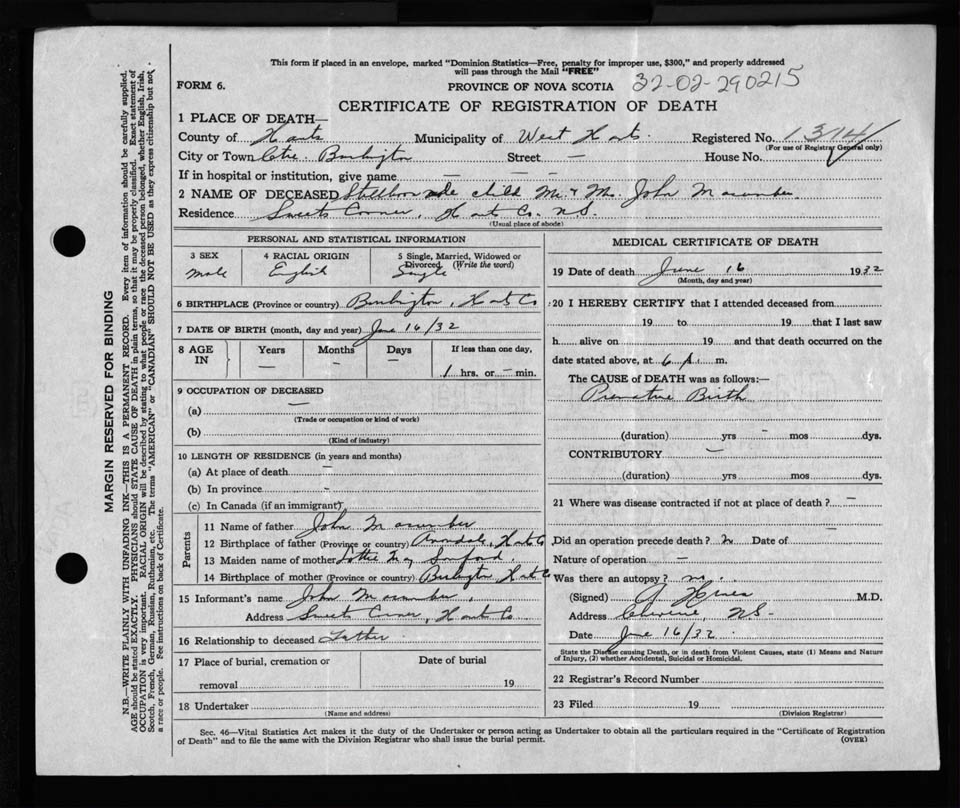 This form if placed in an envelope, marked "Dominion Statistics—Free, penalty for improper use, $300," and properly addressed
will pass through the Mail "FREE"
FORM 6.
PROVINCE OF NOVA SCOTIA 32-02-290215
CERTIFICATE OF REGISTRATION OF DEATH
1 PLACE OF DEATH—
County of Hants Municipality of West Hants. Registered No. 1314
(For use of Registrar General only)
City or Town Ctre. Burlington Street — House No.
If in hospital or institution, give name — — —
2 NAME OF DECEASED Stillborn child Mr. & Mrs. John Macumber
Residence Sweets Corner, Hants Co. N.S.
(Usual place of abode)
PERSONAL AND STATISTICAL INFORMATION
3 SEX 4 RACIAL ORIGIN 5 Single, Married, Widowed or
Divorced. (Write the word)
Male English Single
6 BIRTHPLACE (Province or country) Burlington, Hants Co
7 DATE OF BIRTH (month, day and year) June 16/32
8 AGE IN Years Months Days If less than one day,
— — — 1 hrs. or — min.
9 OCCUPATION OF DECEASED
(a) —
(Trade or occupation or kind of work)
(b)
(Kind of industry)
10 LENGTH OF RESIDENCE (in years and months)
(a) At place of death —
(b) In province -
(c) In Canada (if an immigrant)
Parents
11 Name of father John Macumber
12 Birthplace of father (Province or country) Avondale, Hants Co
13 Maiden name of mother Lottie Sanford
14 Birthplace of mother (Province or country) Burlington Hants Co
15 Informant's name John Macumber
Address Sweets Corner, Hants Co
16 Relationship to deceased Father
17 Place of burial, cremation or Date of burial
removal 19
18 Undertaker
(Name and address)
MEDICAL CERTIFICATE OF DEATH
19 Date of death June 16 1932
(Month, day and year)
20 I HEREBY CERTIFY that I attended deceased from
19 to 19 that I last saw
h alive on 19 and that death occurred on the
date stated above, at 6 A. m.
The CAUSE of DEATH was as follows:—
Premature Birth
(duration) yrs - mos dys.
CONTRIBUTORY —
(duration) yrs mos dys.
21 Where was disease contracted if not at place of death? —
Did an operation precede death? Date of
Nature of operation —
Was there an autopsy? no.
(Signed) M.D.
Address Cheverie, N.S.
Date June 16/32
State the Disease causing Death, or in death from Violent Causes, state (1) Means and Nature
of Injury, (2) whether Accidental, Suicidal or Homicidal.
22 Registrar's Record Number
23 Filed 19
(Division Registrar)
Sec. 46—Vital Statistics Act makes it the duty of the Undertaker or person acting as Undertaker to obtain all the particulars required in the "Certificate of Registration
of Death" and to file the same with the Division Registrar who shall issue the burial permit. (OVER)
MARGIN RESERVED FOR BINDING
N.B.—WRITE PLAINLY WITH UNFADING INK—THIS IS A PERMANENT RECORD. Every item of information should be carefully supplied.
AGE should be stated EXACTLY. PHYSICIANS should STATE CAUSE OF DEATH in plain terms, so that it may be properly classified. Exact statement of
OCCUPATION is very important. RACIAL ORIGIN will be described by stating to what people or race the deceased person belonged, whether English, Irish,
Scotch, French, German, Russian, Ruthenian, etc. The terms "AMERICAN" or "CANADIAN" SHOULD NOT BE USED as they express citizenship but not
a race or people. See instructions on back of Certificate.